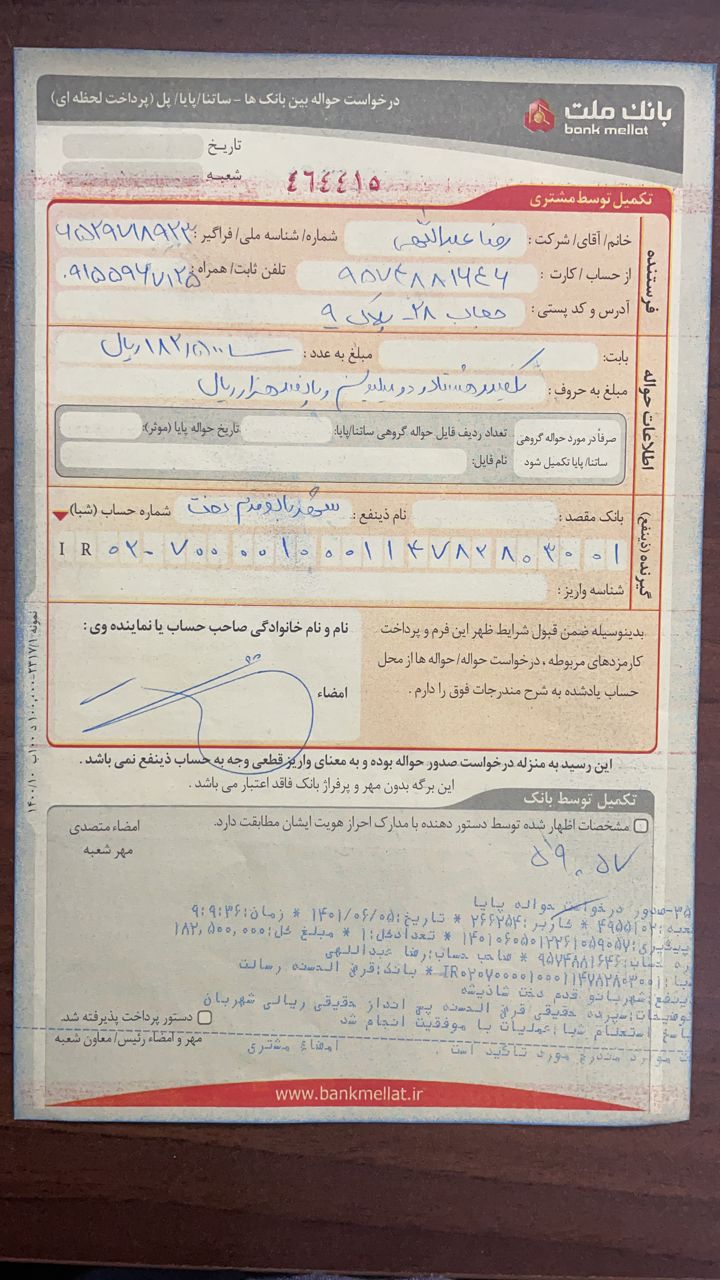 بانک ملت
bank mellat
درخواست حواله بین بانک ها - ساتنا/پایا/ پل (پرداخت لحظه ای)
تاریخ
شعبه
٤٦٤٤١٥
تکمیل توسط مشتری
فرستنده
خانم/ آقای/ شرکت : رضا عبداللهی شماره/ شناسه ملی/ فراگیر :
از حساب / کارت : ۹۵۷۴۸۸۱۶۴۶ تلفن ثابت/ همراه : ۰۹۱۵۵۹۶۷۱۲۵
آدرس و کد پستی : ۲۸ - پلاک ۹
اطلاعات حواله
بابت: مبلغ به عدد : ۱۸۲٫۵۰۰٫۰۰۰ ریال
مبلغ به حروف : یکصد هشتاد و دو میلیون و پانصد هزار ریال
صرفاً در مورد حواله گروهی ساتنا/ پایا تکمیل شود
تعداد ردیف فایل حواله گروهی ساتنا/پایا: تاریخ حواله پایا (موثر):
نام فایل:
گیرنده (ذینفع)
بانک مقصد : نام ذینفع : شهربانو قدم دخت شماره حساب (شبا)
IR ۰۲۰۷۰۰۰۰۱۰۰۰۱۱۴۷۸۲۸۰۳۰۰۱
شناسه واریز :
بدینوسیله ضمن قبول شرایط ظهر این فرم و پرداخت
کارمزدهای مربوطه ، درخواست حواله/ حواله ها از محل
حساب یادشده به شرح مندرجات فوق را دارم .
نام و نام خانوادگی صاحب حساب یا نماینده وی :
امضاء
این رسید به منزله درخواست صدور حواله بوده و به معنای واریز قطعی وجه به حساب ذینفع نمی باشد .
این برگه بدون مهر و پرفراژ بانک فاقد اعتبار می باشد .
تکمیل توسط بانک
مشخصات اظهار شده توسط دستور دهنده با مدارک احراز هویت ایشان مطابقت دارد.
امضاء متصدی
مهر شعبه
۵۹۰۵۷
۳۵-صدور درخواست حواله پایا
عبه:۴۹۵۵۱۰۲ * کاربر:۲۶۶۲۵۴ * تاریخ:۱۴۰۱/۰۶/۰۵ * زمان:۹:۹:۳۶
پیگیری:۱۴۰۱۰۶۰۵۰۱۲۲۶۱۰۵۹۰۵۷ * تعدادکل:۱ * مبلغ کل:۱۸۲,۵۰۰,۰۰۰
ره حساب:۹۵۷۴۸۸۱۶۴۶ * صاحب حساب:رضا عبداللهی
شبا:IR۰۲۰۷۰۰۰۰۱۰۰۰۱۱۴۷۸۲۸۰۳۰۰۱ * بانک:قرض الحسنه رسالت
ذینفع:شهربانو قدم دخت شادیشه
توضیحات:سپرده حقیقی/قرض الحسنه پس انداز حقیقی ریالی شهربان
پاسخ استعلام شبا:عملیات با موفقیت انجام شد
موارد مندرج مورد تائید است . امضاء مشتری
دستور پرداخت پذیرفته شد.
مهر و امضاء رئیس/ معاون شعبه
www.bankmellat.ir